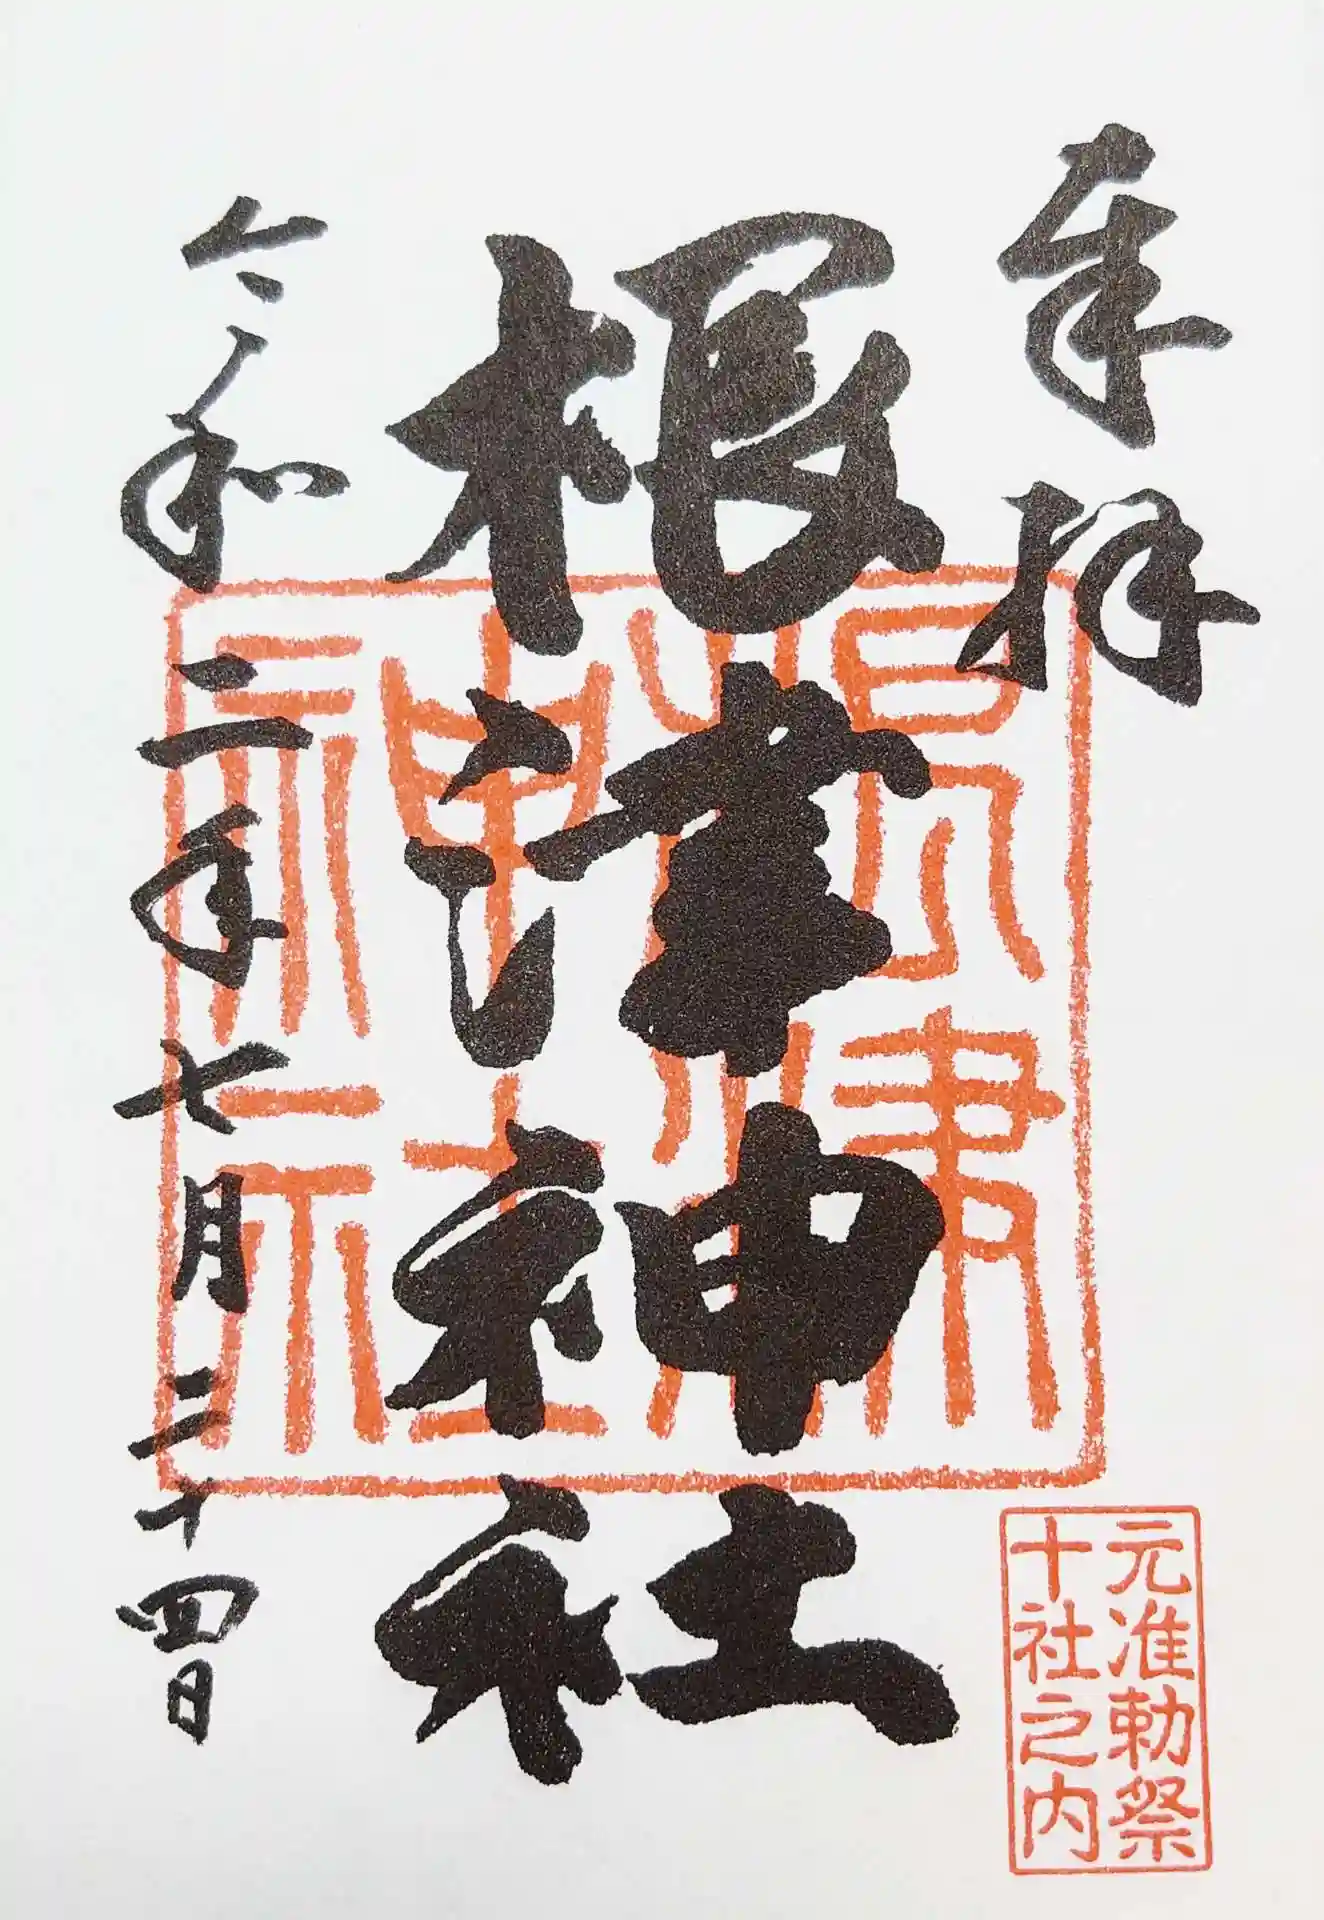 奉拝
根津神社
令和二年七月二十四日
根津神社
元准勅祭
十社之内